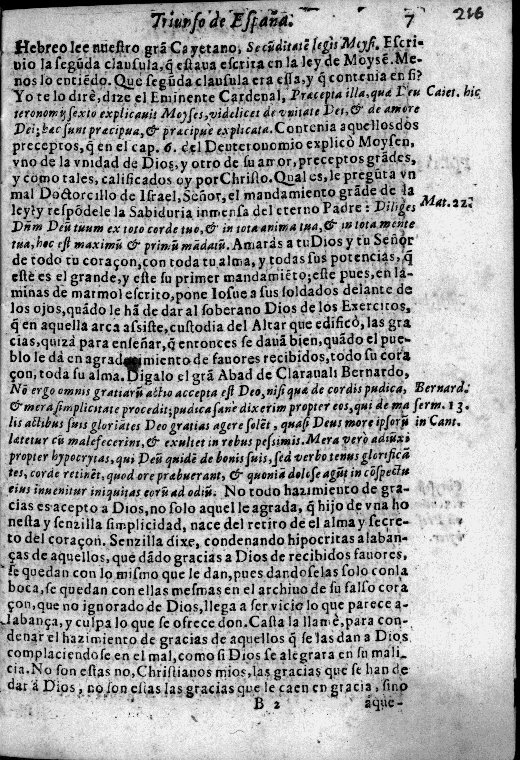 Triunfo de España. 7 216
Hebreo lee nuestro grã Cayetano, Secũditatẽ legis Moysi. Escri-
vio la segũda clausula, q̃ estava escrita en la ley de Moysẽ. Me-
nos lo entiẽdo. Que segũda clausula era essa, y q̃ contenia en si?
Yo te lo dirè, dize el Eminente Cardenal, Præcepta illa, quæ Deu
Caiet. hic
teronomij sexto explicauit Moyses, videlicet de vnitate Dei, & de amore
Dei; hæc sunt præcipua, & præcipue explicata. Contenia aquellos dos
preceptos, q̃ en el cap. 6. del Deuteronomio explicò Moysen,
vno de la vnidad de Dios, y otro de su amor, preceptos grãdes,
y como tales, calificados oy por Christo. Qual es, le pregũta vn
mal Doctorcillo de Israel, Señor, el mandamiento grãde de la
ley? y respõdele la Sabiduria inmensa del eterno Padre: Diliges
Mat. 22.
Dñm Deũ tuum ex toto corde tuo, & in tota anima tua, & in tota mente
tua, hoc est maximũ & primũ mãdatũ. Amarás a tu Dios y tu Señor
de todo tu coraçon, con toda tu alma, y todas sus potencias, q̃
este es el grande, y este su primer mandamiẽto; este pues, en la-
minas de marmol escrito, pone Iosue a sus soldados delante de
los ojos, quãdo le hã de dar al soberano Dios de los Exercitos,
q̃ en aquella arca assiste, custodia del Altar que edificò, las gra
cias, quizà para enseñar, q̃ entonces se davã bien, quãdo el pue-
blo le dà en agradecimiento de fauores recibidos, todo su cora
çon, toda su alma. Digalo el grã Abad de Claraualì Bernardo,
Nõ ergo omnis gratiarũ actio accepta est Deo, nisi quæ de cordis pudica,
Bernard.
& mera simplicitate procedit; pudica sanè dixerim propter eos, qui de ma
serm. 13.
lis actibus suis gloriãtes Deo gratias agere solẽt, quasi Deus more ipsorũ
in Cant.
lætetur cũ malefecerint, & exultet in rebus pessimis. Mera verò adiũxi
propter hypocrytas, qui Deũ quidẽ de bonis suis, sed verbo tenus glorificã
tes, corde retinẽt, quod ore præbuerant, & quoniã dolose agũt in cõspectu
eius inuenitur iniquitas eorũ ad odiũ. No todo hazimiento de gra-
cias es acepto a Dios, no solo aquel le agrada, q̃ hijo de vna ho
nesta y senzilla simplicidad, nace del retiro de el alma y secre-
to del coraçon. Senzilla dixe, condenando hipocritas alaban-
ças de aquellos, que dãdo gracias a Dios de recibidos fauores,
se quedan con lo mismo que le dan, pues dandoselas solo con la
boca, se quedan con ellas mesmas en el archiuo de su falso cora
çon, que no ignorado de Dios, llega a ser vicio lo que parece a-
labança, y culpa lo que se ofrece don. Casta la llamè, para con-
denar el hazimiento de gracias de aquellos q̃ se las dan a Dios
complaciendose en el mal, como si Dios se alegrara en su mali-
cia. No son estas no, Christianos mios, las gracias que se han de
dar à Dios, no son estas las gracias que le caen en gracia, sino
B 2 aque-